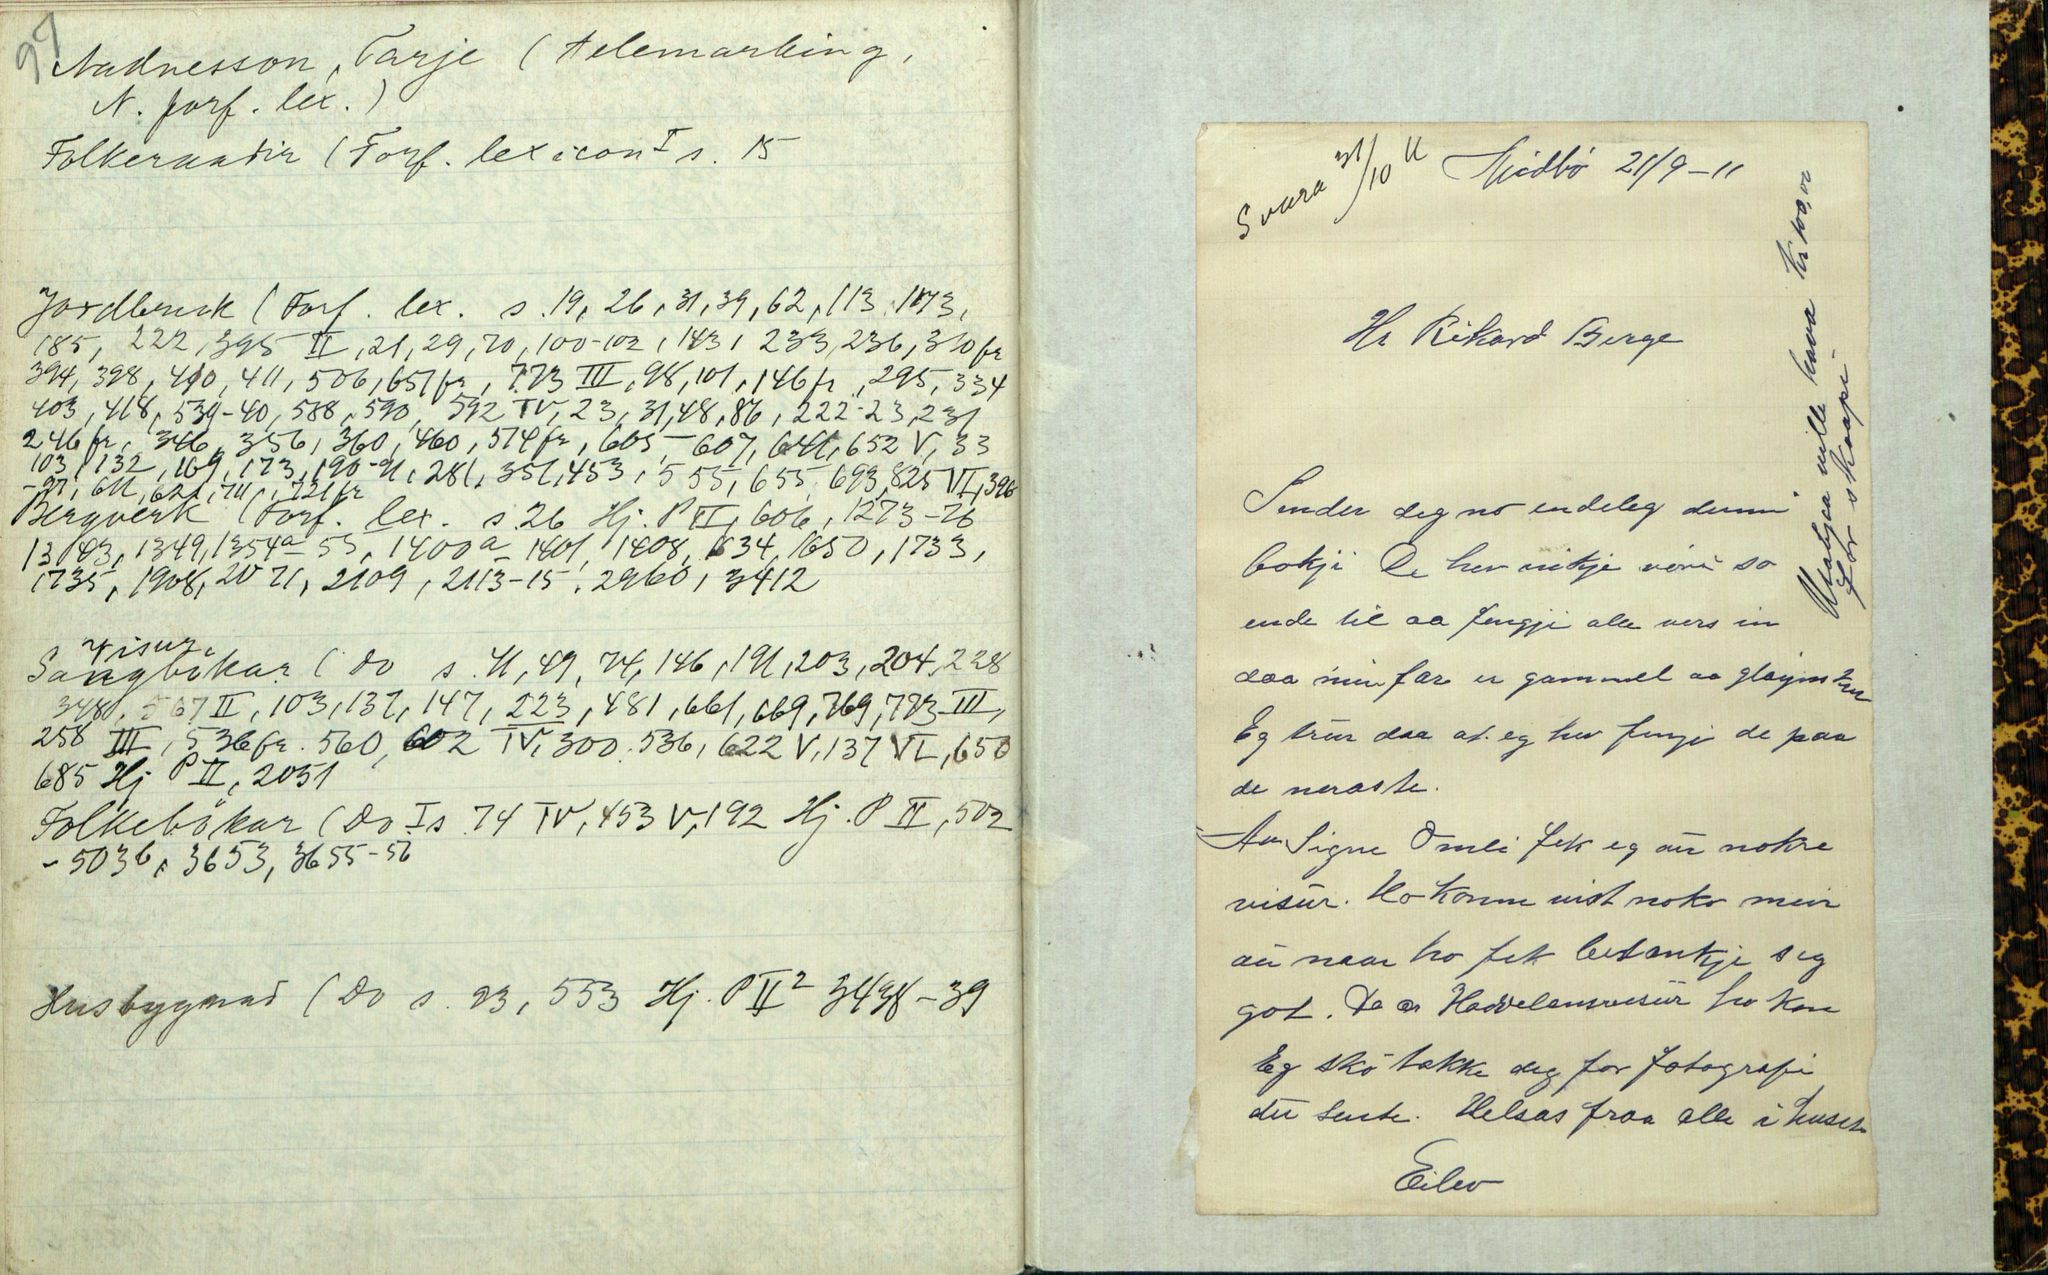 97
Aadnesson, Tarje (telemarking,
N. forf. lex.)
Folkeraadir (Forf. lexicon I s. 15
Jordbruk (Forf. lex. s. 19, 26, 31, 39, 62, 113, 1173,
185, 222, 395 II, 21, 29, 70, 100-102, 143, 233, 236, 310 fr
394, 398, 410, 411, 506, 651 fr, 773 III, 98, 101, 146 fr, 295, 334
403, 418, 539-40, 588, 590, 592 IV, 23, 31, 48, 86, 222-23, 231
246 fr, 346, 356, 360, 460, 574 fr, 605-607, 641, 652 V, 33
103, 132, 169, 173, 190-91, 281, 351, 453, 555, 655, 693, 825 VI, 396
-97, 611, 621, 711, 721 fr
Bergverk (Forf. lex. s. 26 Hj. P II, 606, 1273-76
1343, 1349, 1354a-55, 1400a-1401, 1408, 1634, 1650, 1733,
1735, 1908, 2071, 2109, 2113-15, 2960, 3412
visur,
Sangbökar (Do s. 41, 49, 74, 146, 191, 203, 204, 228
348, 567 II, 103, 137, 147, 223, 481, 661, 669, 769, 773 III,
258 III, 536 fr. 560, 602 IV, 300, 536, 622 V, 137 VI, 650
685 Hj P II, 2051
Folkebökar (Do I s. 74 IV, 453 V, 192 Hj. P II, 502
-503b, 3653, 3655-56
Husbygnad (Do s. 23, 553 Hj. P II² 3438-39
Svara 31/10 11
Midbö 21/9-11
Utabjaa ville hava kr 100,00
for skaapi
Hr Rikard Berge
Sender deg no endeleg denni
bokji De hev inkje vöri so
ende til aa fengji alle vers in
daa min far er gammel aa gløymsen
Eg trur daa at eg hev fengji de paa
de neraste.
Av Signe Omli fek eg au nokre
visur. Ho konne vist noko meir
au naar ho fek betenkje seg
got. De er Havelansvisur ho kan
Eg sko takke deg for fotografi
du sente. Helsas fraa alle i huset
Eilev